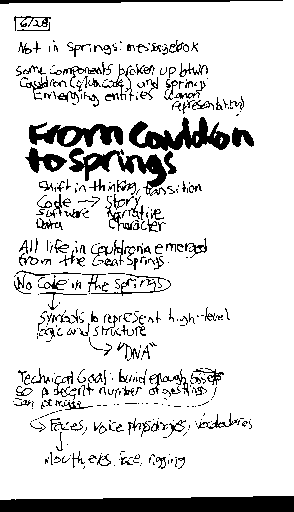 6/28
Not in springs: messagebox
Some components broken up btwn
Cauldron (glue code) and springs
Emerging entities (canon
representation)
From Cauldron
to Springs
Shift in thinking, transition
Code → Story
Software Narrative
Data Character
All life in Cauldronia emerged
from the Great Springs.
No Code in the Springs
Symbols to represent high-level
logic and structure
"DNA"
Technical Goal: build enough
so a decent number of
can be made
Faces, voice physiologies, vocabularies
Mouth, eyes, face, rigging